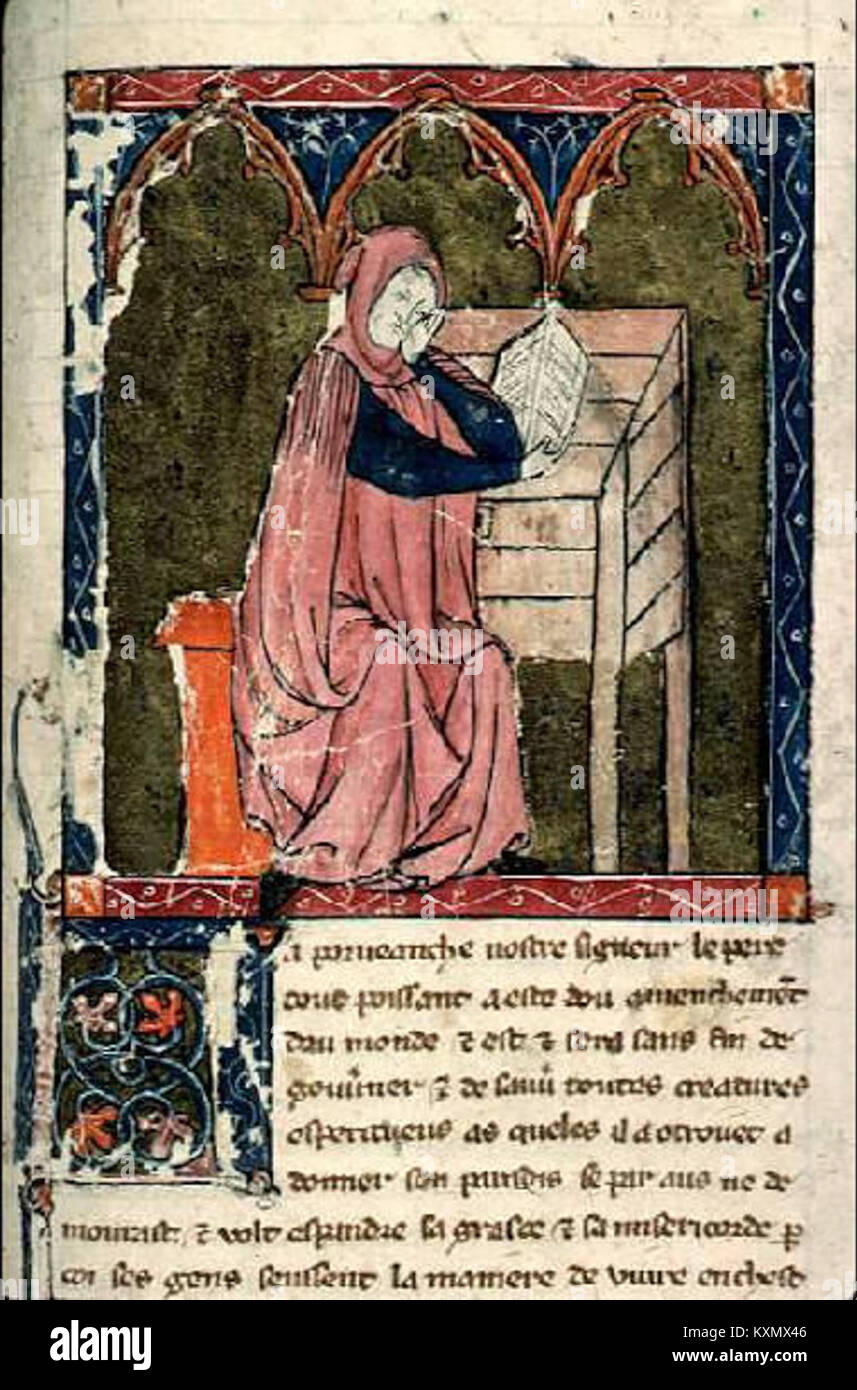 a porueanche nostre signeur le pere
tous poissant a este dou qmenchemēt
dau monde ⁊ est ⁊ sera sans fin de
gouu̓ner ⁊ de sauu̓ toutes creatures
as queles il a otrouet a
donner son paradis se par aus ne de
mourast, ⁊ volt espandre sa grasce ⁊ sa misericorde ꝑ
coi ses gens seussent la maniere de viure en chest
alamy
Image ID: KXMX46
www.alamy.com